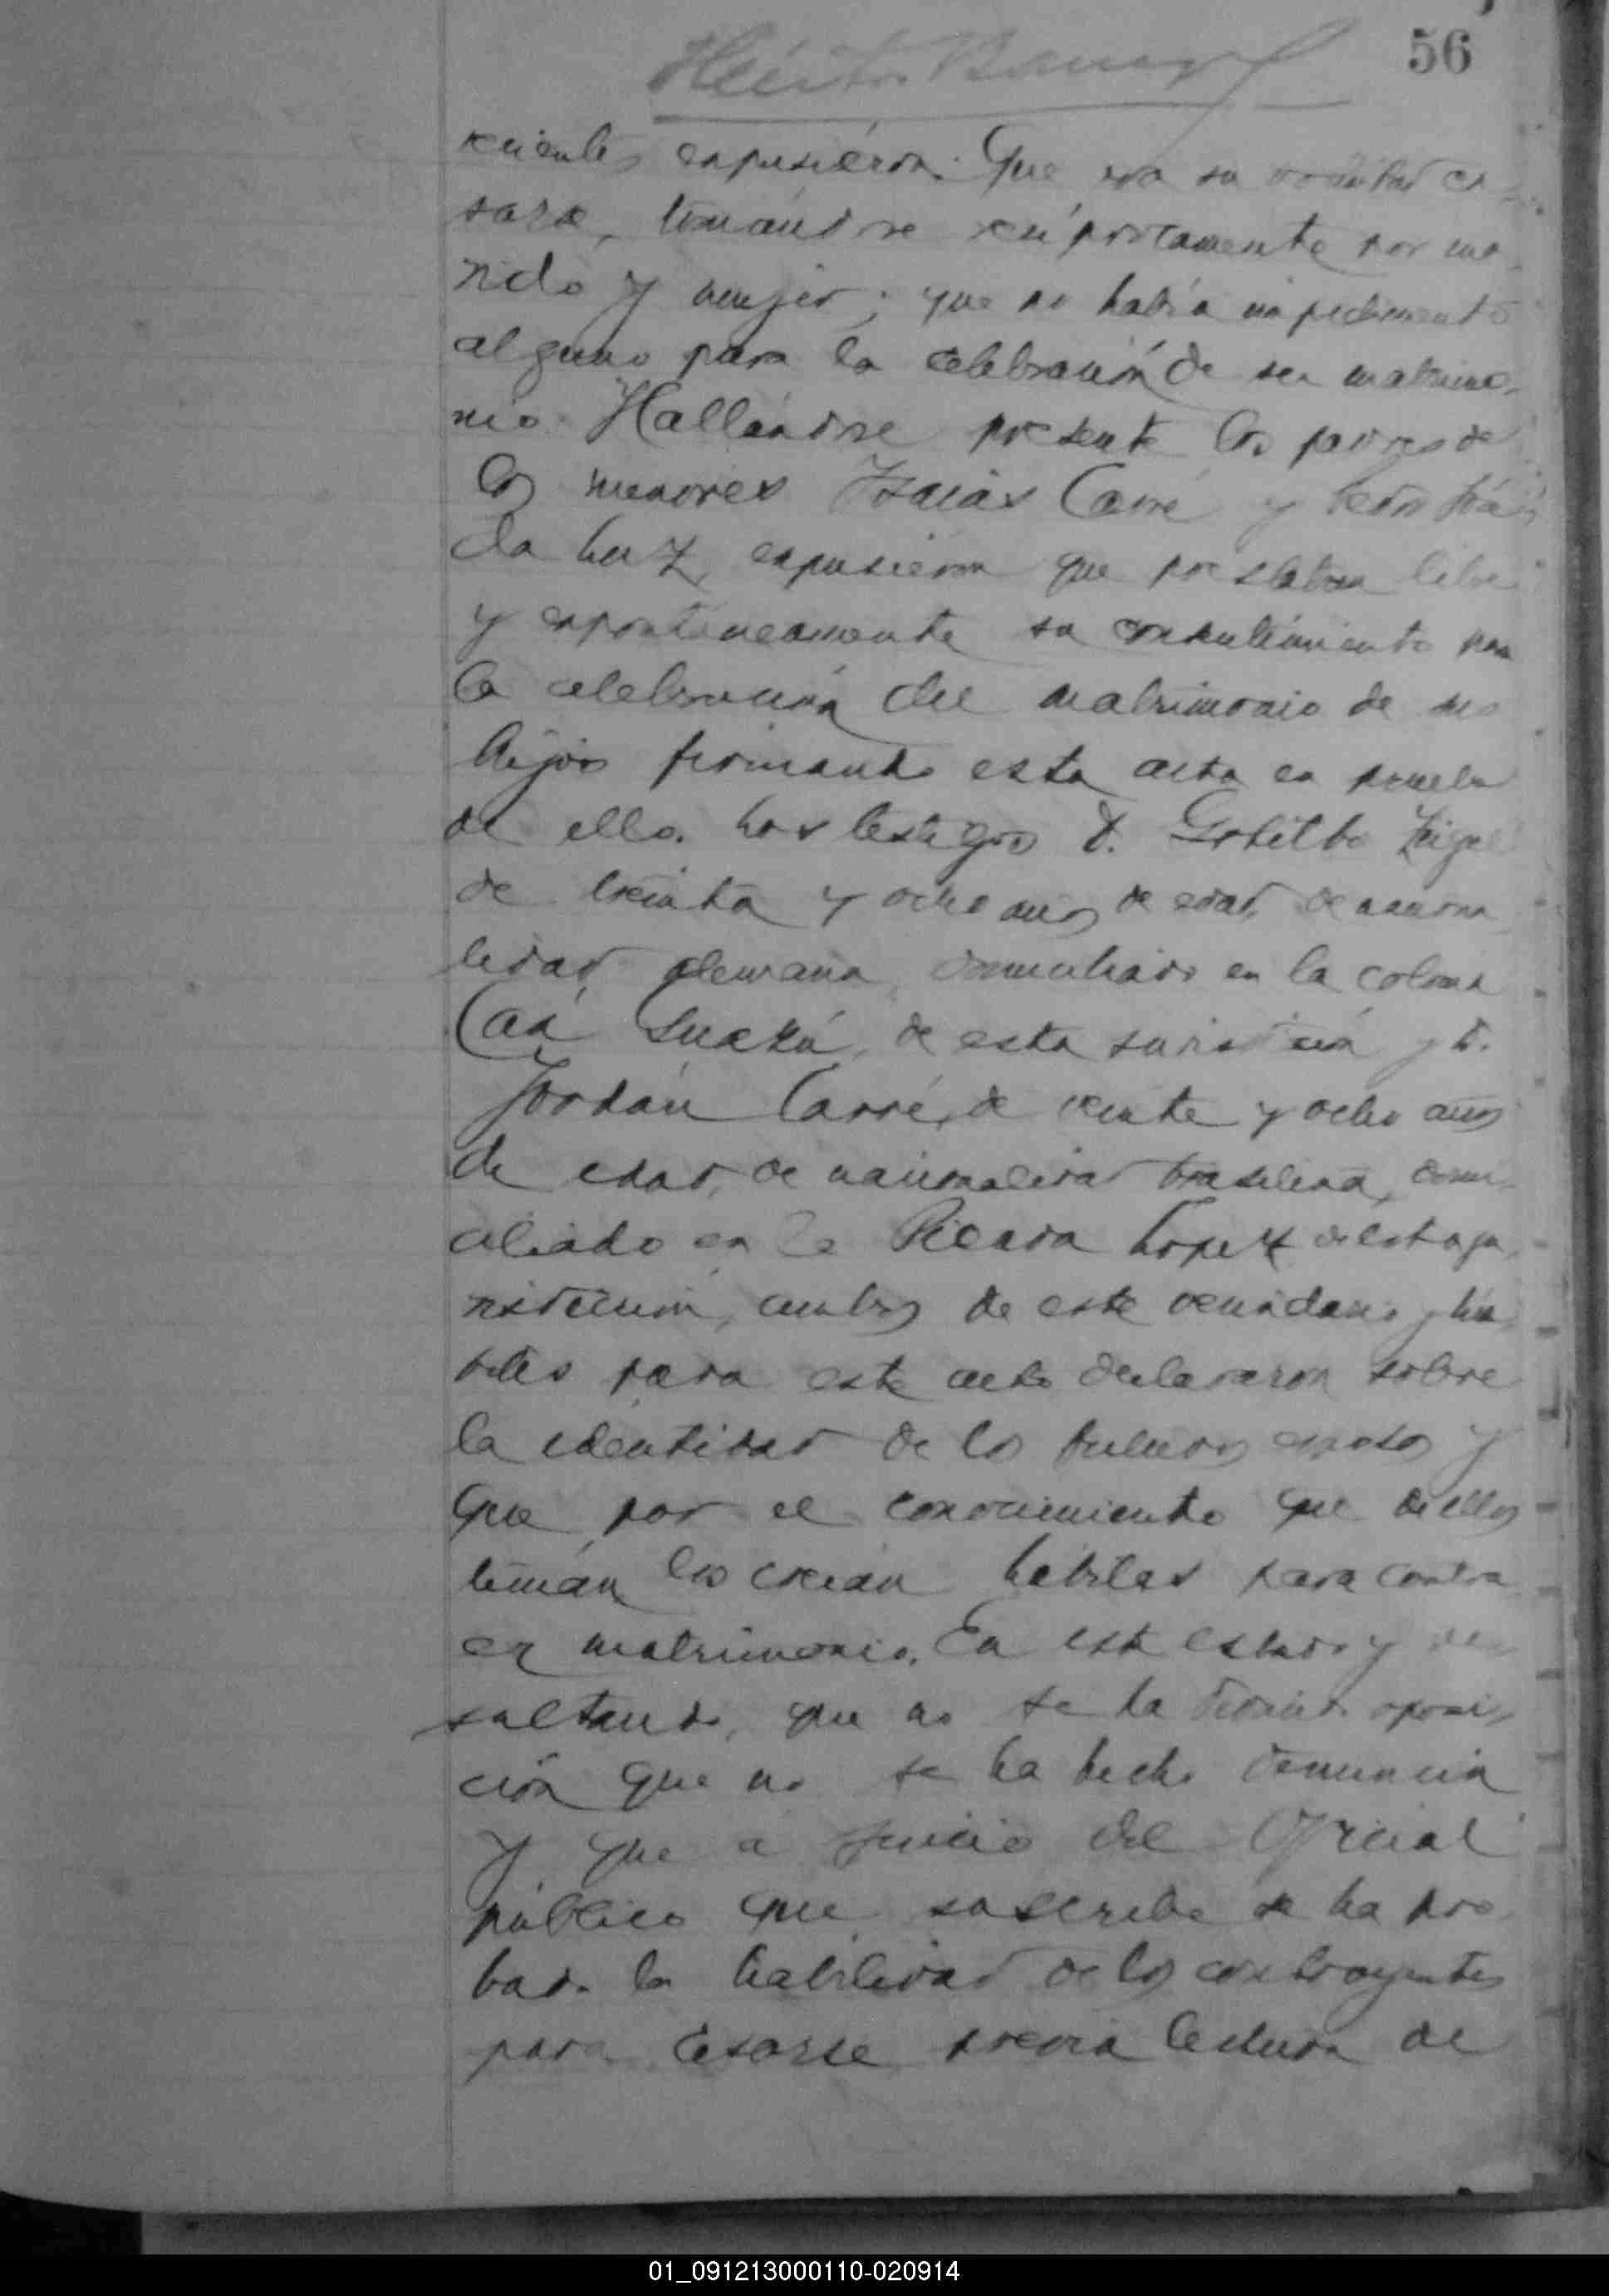 56
recientes expusieron: Que era su voluntad ca-
sarse, tomándose recíprocamente por ma-
rido y mujer; que no había impedimento
alguno para la celebración de su matrimo-
nio. Hallándose presente los padres de
los menores Isaías Carré y
da Luz, expusieron que prestaban libre
y espontaneamente su consentimiento para
la celebración del matrimonio de sus
hijos firmando esta acta en prueba
de ello. Los testigos D.
de treinta y ocho años de edad, de naciona
lidad alemana, domiciliado en la colonia
Caá Guazú, de esta jurisdicción y D.
Jordán Carré, de veinte y ocho años
de edad, de nacionalidad brasilera, domi-
ciliado en la Picada Lopez de esta ju-
risdicción, ambos de este vecindario y há
biles para este acto declararon sobre
la identidad de los futuros esposos y
que por el conocimiento que de ellos
tenían los creían hábiles para contra
er matrimonio. En este estado y re-
sultando, que no se ha deducido oposi-
ción que no se ha hecho denuncia
y que a juicio del Oficial
público que suscribe se ha pro
bado la habilidad de los contrayentes
para casarse previa lectura de
01_091213000110-020914